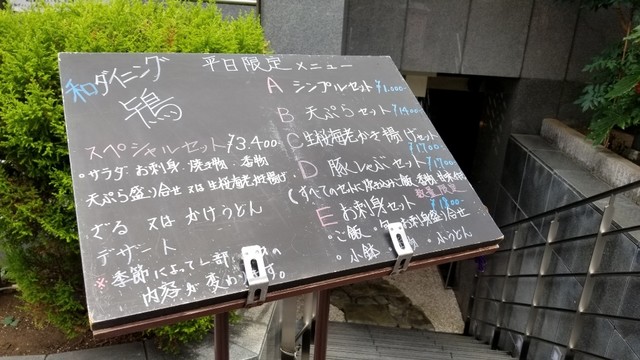 和ダイニング 平日限定メニュー
鴇
A シンプルセット ¥1,000-
B 天ぷらセット ¥1400-
C 生桜海老かき揚げセット
¥1700-
D 豚しゃぶセット ¥1700-
(すべてのセットに
数量限定
E お刺身セット ¥1800-
・ご飯 お刺身盛り合せ
・小鉢 ・小うどん
スペシャルセット ¥3,400-
・サラダ・お刺身・焼き物・香物
天ぷら盛り合せ 又は 生桜海老かき揚げ
ざる 又は かけうどん
デザート
※季節によって一部
内容が変わ